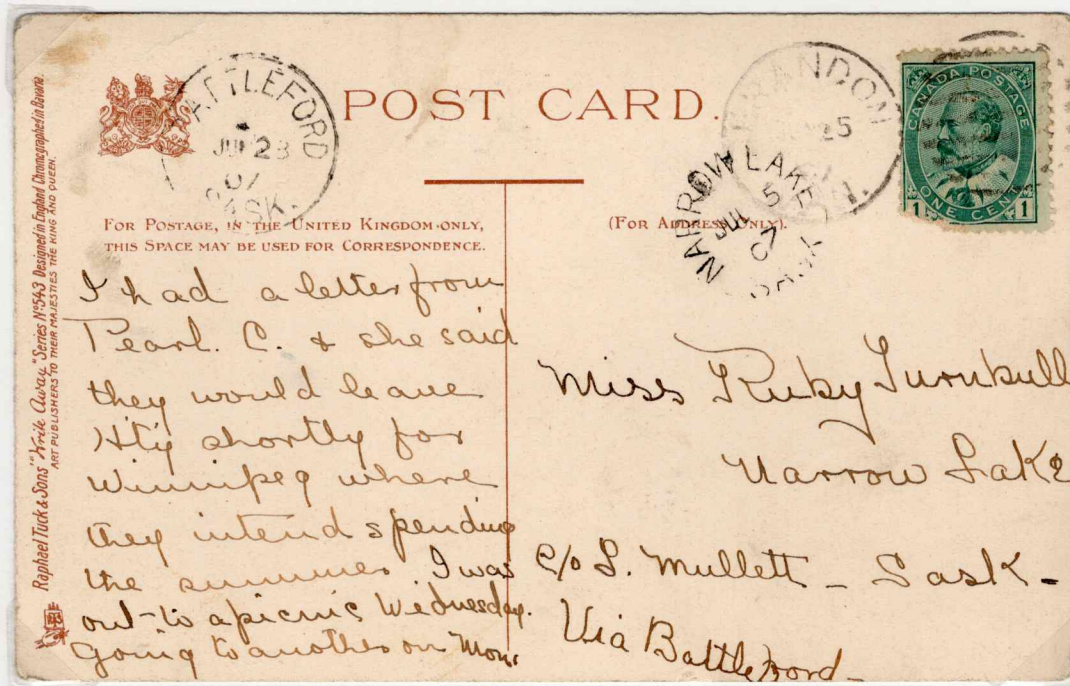 Raphael Tuck & Sons' "Write Away" Series Nº 543 Designed in England Chromographed in Bavaria.
ART PUBLISHERS TO THEIR MAJESTIES THE KING AND QUEEN.
POST CARD.
ATTLEFORD
JU 28
07
SASK.
BRANDON
25
NARROW LAKE
JUL 5
07
SASK
CANADA POSTAGE
ONE CENT
1 1
FOR POSTAGE, IN THE UNITED KINGDOM ONLY,
THIS SPACE MAY BE USED FOR CORRESPONDENCE.
(FOR ADDRESS ONLY).
I had a letter from
Pearl. C. & she said
they would leave
shortly for
Winnipeg where
they intend spending
the summer. I was
out to a picnic Wednesday.
Going to another on Mon.
Miss Ruby Turnbull
Narrow Lake
c/o L. Mullett - Sask -
Via Battleford -